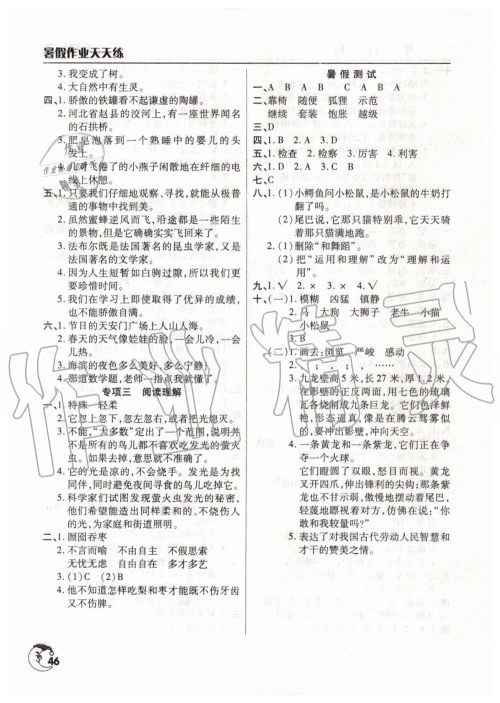 暑假作业天天练
3. 我变成了树。
4. 大自然中有生灵。
四、1. 骄傲的铁罐看不起谦虚的陶罐。
2. 河北省赵县的洨河上,有一座世界闻名
的石拱桥。
3. 肥皂泡落到一个熟睡中的婴儿的头
发上。
4. 叶叶飞倦了的小燕子闲散地在纤细的电
线上休憩。
五、1. 只要我们仔细地观察,就可以从极普通
的事物中找到美。
2. 虽然蜜蜂逆风而飞,沿途都是一些陌生
的景物,但是它确确实实飞回来了。
3. 法布尔既是法国著名的昆虫学家,又是
法国著名的文学家。
4. 因为人生短暂如白驹过隙,所以我们更
要珍惜时间。
5. 我们在学习中即使取得了优异的成绩,
也不能骄傲自满。
六、1. 节日的天安门广场上人山人海。
2. 春天的天气像娃娃的脸,一会儿冷,一
会儿热。
3. 海滨的夜色多么美好,多么宁静!
4. 那道数学题,老师给我讲了三遍。
专项三 阅读理解
一、1. 特殊 轻柔
2. 它忽上忽下,忽左忽右,或者把光熄灭。
3. 不能,“大多数”定出了一个范围,说明并
不是所有的鸟儿都不喜欢吃萤火虫。
如果去掉,意思就不准确了。
4. 它的光是凉的,不会烧手。发光是为了
找伴,同时避免夜间寻食的鸟儿吃掉它。
5. 科学家们试图发现萤火虫发光的秘密,
他们希望造出同样高效、凉的、不烧伤人
的光,为家庭和街道照明。
二、1. 囫囵吞枣
2. 不言而喻 不由自主 不假思索
无忧无虑 自由自在 多才多艺
3. (1)C (2)B
4. 他不知道怎样吃梨和枣才能既不伤牙齿
又不伤脾。
46
暑假测试
一、A B A B C A B A
二、靠椅 随便 狐狸 示范
继续 套装 饱胀 越级
三、D
四、1. B 2. A 3. D
五、1. 检查 2. 检察 3. 厉害 4. 利害
七、C
八、1. (1)小鳟鱼问小松鼠,是小松鼠的牛奶打
翻了吗?
(2)尾巴说,它那只猫特别乖,它天天骑
着那只猫满地跑。
2. (1)删除“和舞蹈”。
(2)把“运用和理解”改为“理解和运
用”。
九、1. √ 2. × 3. × 4. √
十、(一)1. 模糊 凶猛 镇静
2. 马 大狗 大狮子 老牛 小猫
小松鼠
3. B
(二)1. 画去:浏览 严峻 感动
2. 。 ! , 。 。
3. 九龙壁高5米,长17米,厚1.2米,
在影壁的正反两面,用七色的琉璃
瓦各烧制成九条巨龙。它们体态矫
健,龙爪雄劲,似奔腾在云雾波涛之
中。有的腾云驾雾,栩栩如生;有的
在影壁上奔腾,冲向天空。
4. 一条黄龙和一条蓝龙,它们正在争
夺一个火球。
它们瞪圆了双眼,怒目而视。黄龙
又开四爪,伸出锋利的尖钩;蓝龙
也不甘示弱,傲慢地摆动着尾巴,
轻蔑地瞟视着对方,仿佛在说:“你
敢和我较量吗?”
5. 表达了对我国古代劳动人民智慧和
才干的赞美之情。